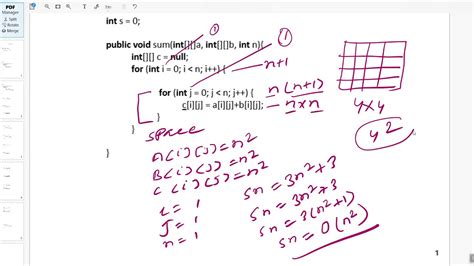 PDF
Manager
Split
Rotate
Extract
int s = 0;
public void sum(int[][]a, int[][]b, int n){
int[][] c = null;
for (int i = 0; i < n; i++) {
for (int j = 0; j < n; j++) {
c[i][j] = a[i][j]+b[i][j];
}
}
}
1
1
n+1
n(n+1)
n×n
4×4
4²
space
A[i][j]=n²
B[i][j]=n²
C[i][j]=n²
i = 1
j = 1
n = 1
Sn = 3n²+3
Sn = 3n²+3
Sn = 3(n²+1)
Sn = O(n²)
1